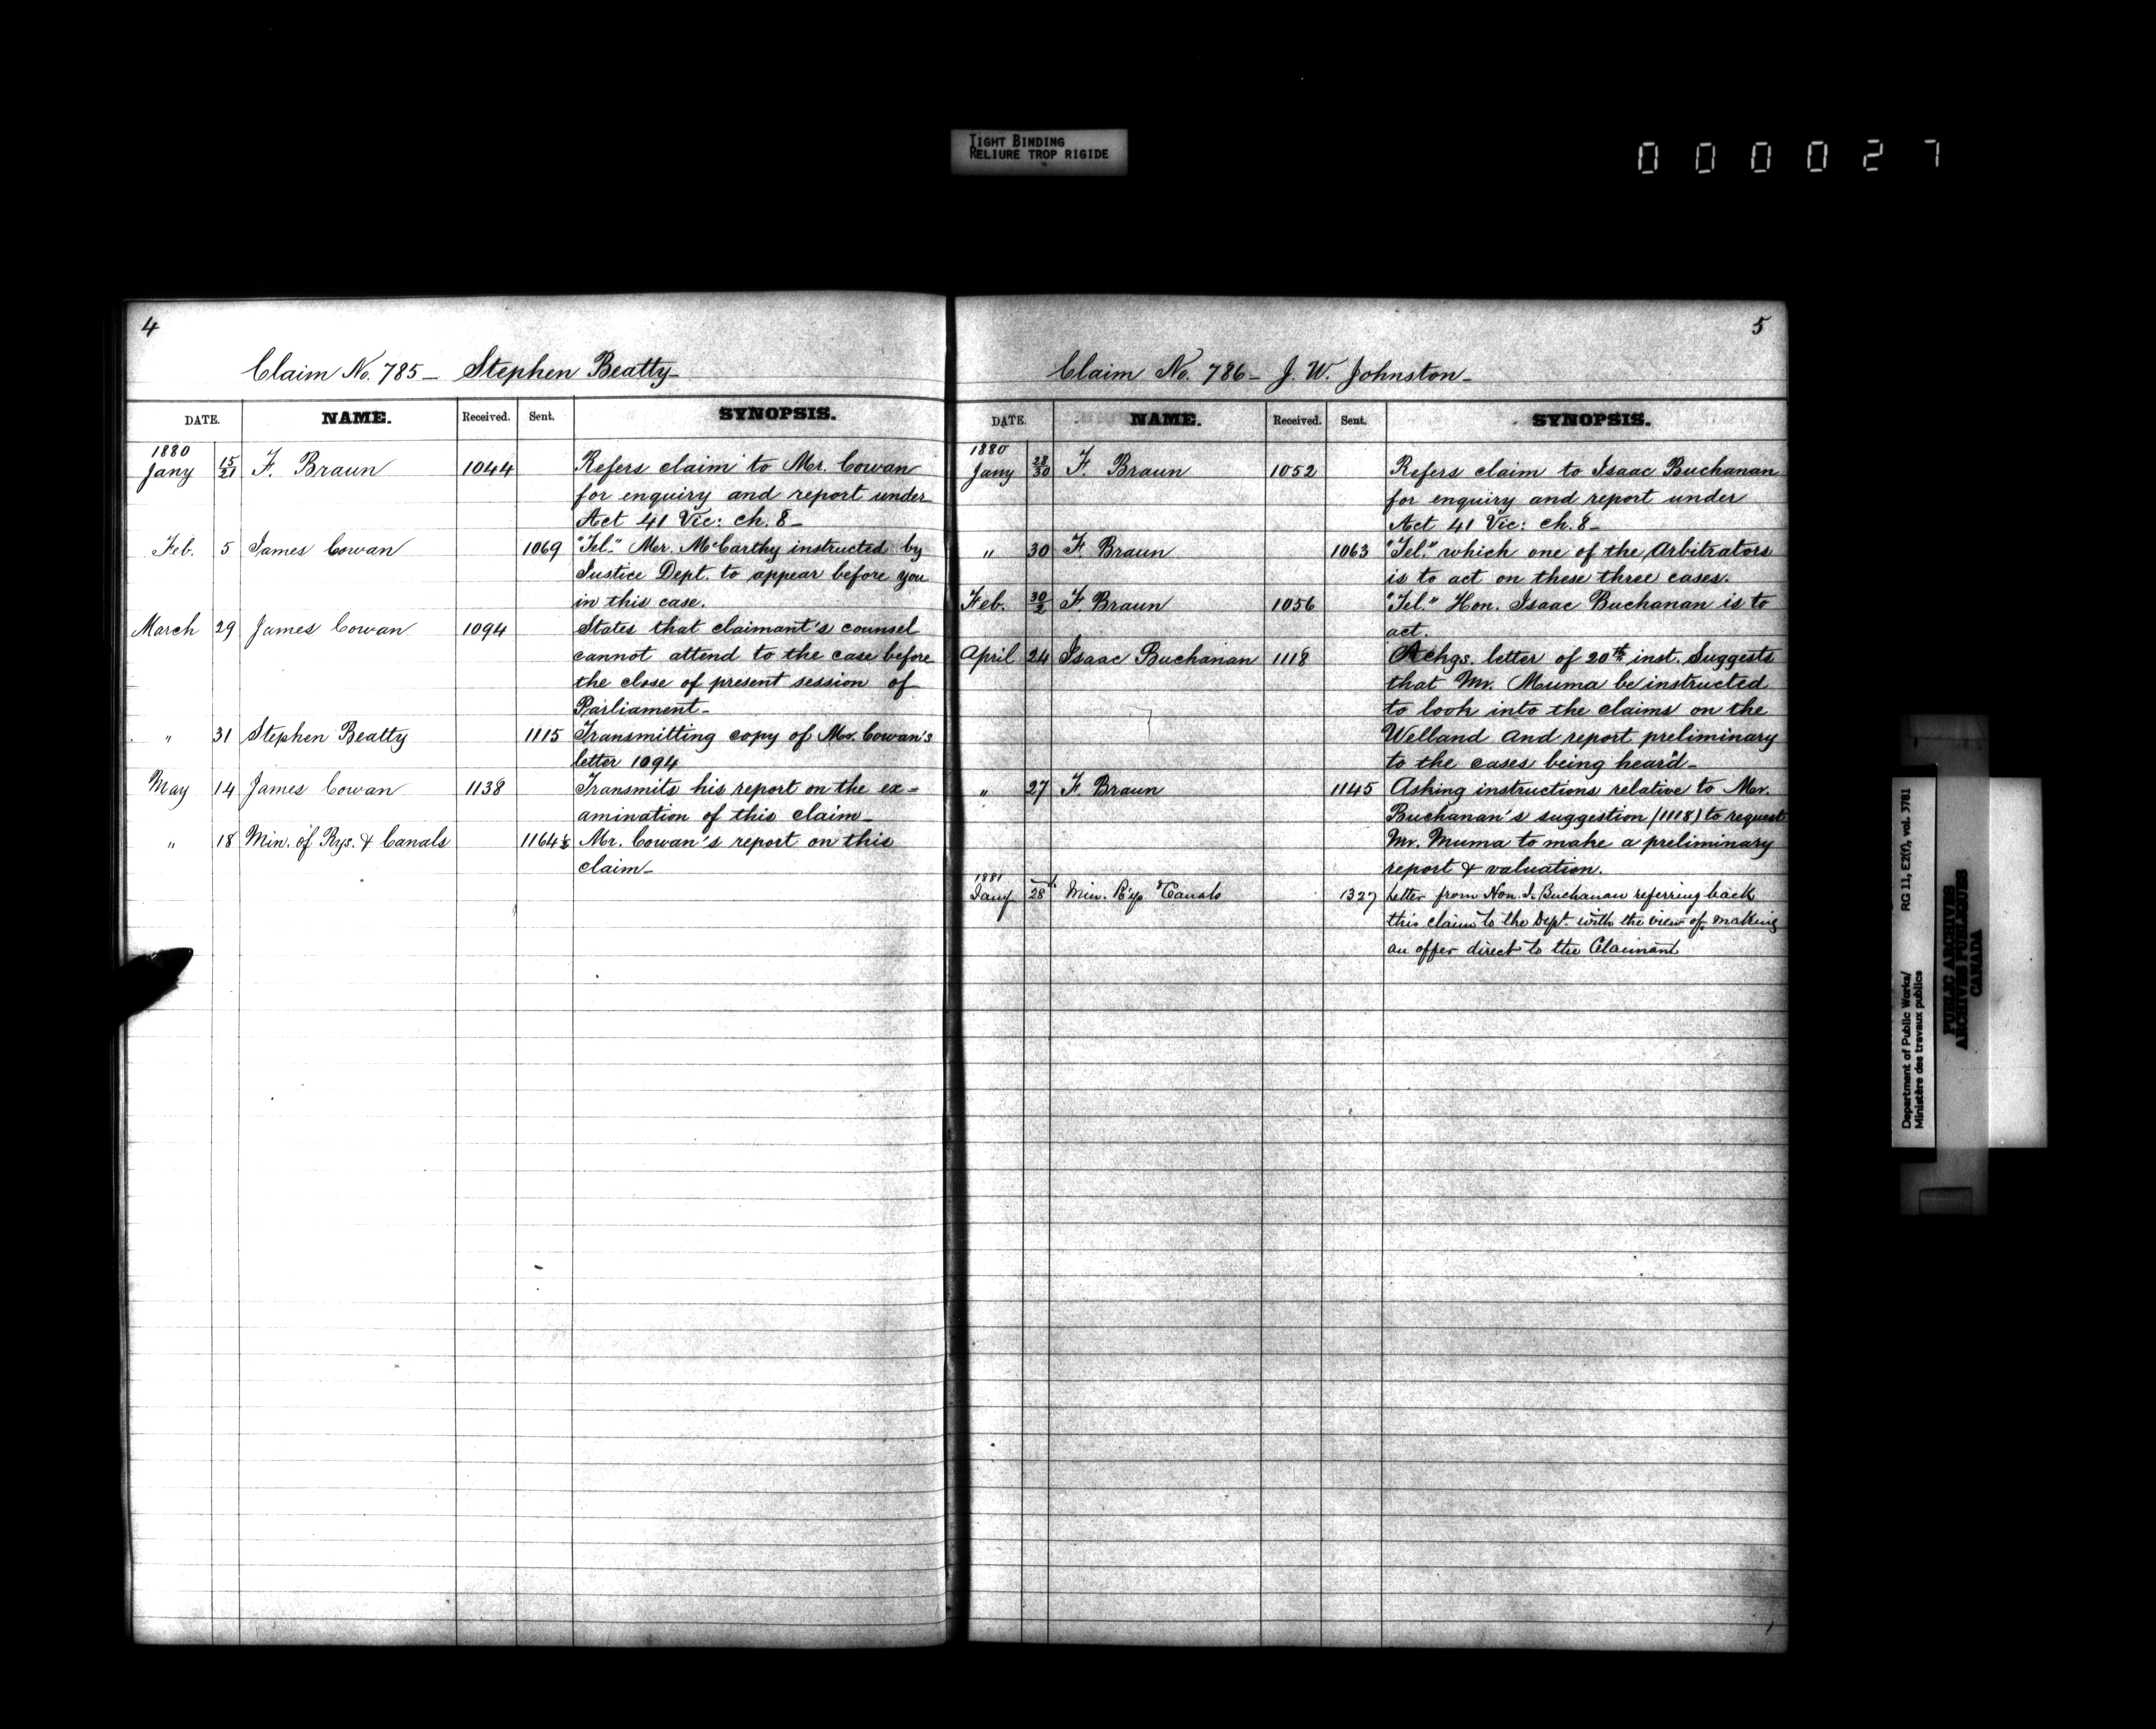 TIGHT BINDING
RELIURE TROP RIGIDE
000027
4
Claim No. 785 – Stephen Beatty –
DATE. NAME. Received. Sent. SYNOPSIS.
1880
Jany 15/21 F. Braun 1044 Refers claim to Mr. Cowan
for enquiry and report under
Act 41 Vic: ch. 8 –
Feb. 5 James Cowan 1069 "Tel." Mr. McCarthy instructed by
Justice Dept. to appear before you
in this case.
March 29 James Cowan 1094 States that claimant's counsel
cannot attend to the case before
the close of present session of
Parliament –
" 31 Stephen Beatty 1115 Transmitting copy of Mr. Cowan's
letter 1094
May 14 James Cowan 1138 Transmits his report on the ex=
amination of this claim –
" 18 Min. of Rys. & Canals 1164½ Mr. Cowan's report on this
claim –
5
Claim No. 786 – J. W. Johnston –
DATE. NAME. Received. Sent. SYNOPSIS.
1880
Jany 28/30 F. Braun 1052 Refers claim to Isaac Buchanan
for enquiry and report under
Act 41 Vic: ch. 8 –
" 30 F. Braun 1063 "Tel." which one of the Arbitrators
is to act on these three cases.
Feb. 30/2 F. Braun 1056 "Tel." Hon. Isaac Buchanan is to
act.
April 24 Isaac Buchanan 1118 Ackgs. letter of 20th inst. Suggests
that Mr. Muma be instructed
to look into the claims on the
Welland and report preliminary
to the cases being heard –
" 27 F. Braun 1145 Asking instructions relative to Mr.
Buchanan's suggestion (1118) to request
Mr. Muma to make a preliminary
report & valuation.
1881
Jany 28 Min. Rys Canals 1327 Letter from Hon. I. Buchanan referring back
this claim to the Dept. with the view of making
an offer direct to the Claimant
Department of Public Works/
Ministère des travaux publics
RG 11, E2(f), vol. 3781
PUBLIC ARCHIVES
ARCHIVES PUBLIQUES
CANADA